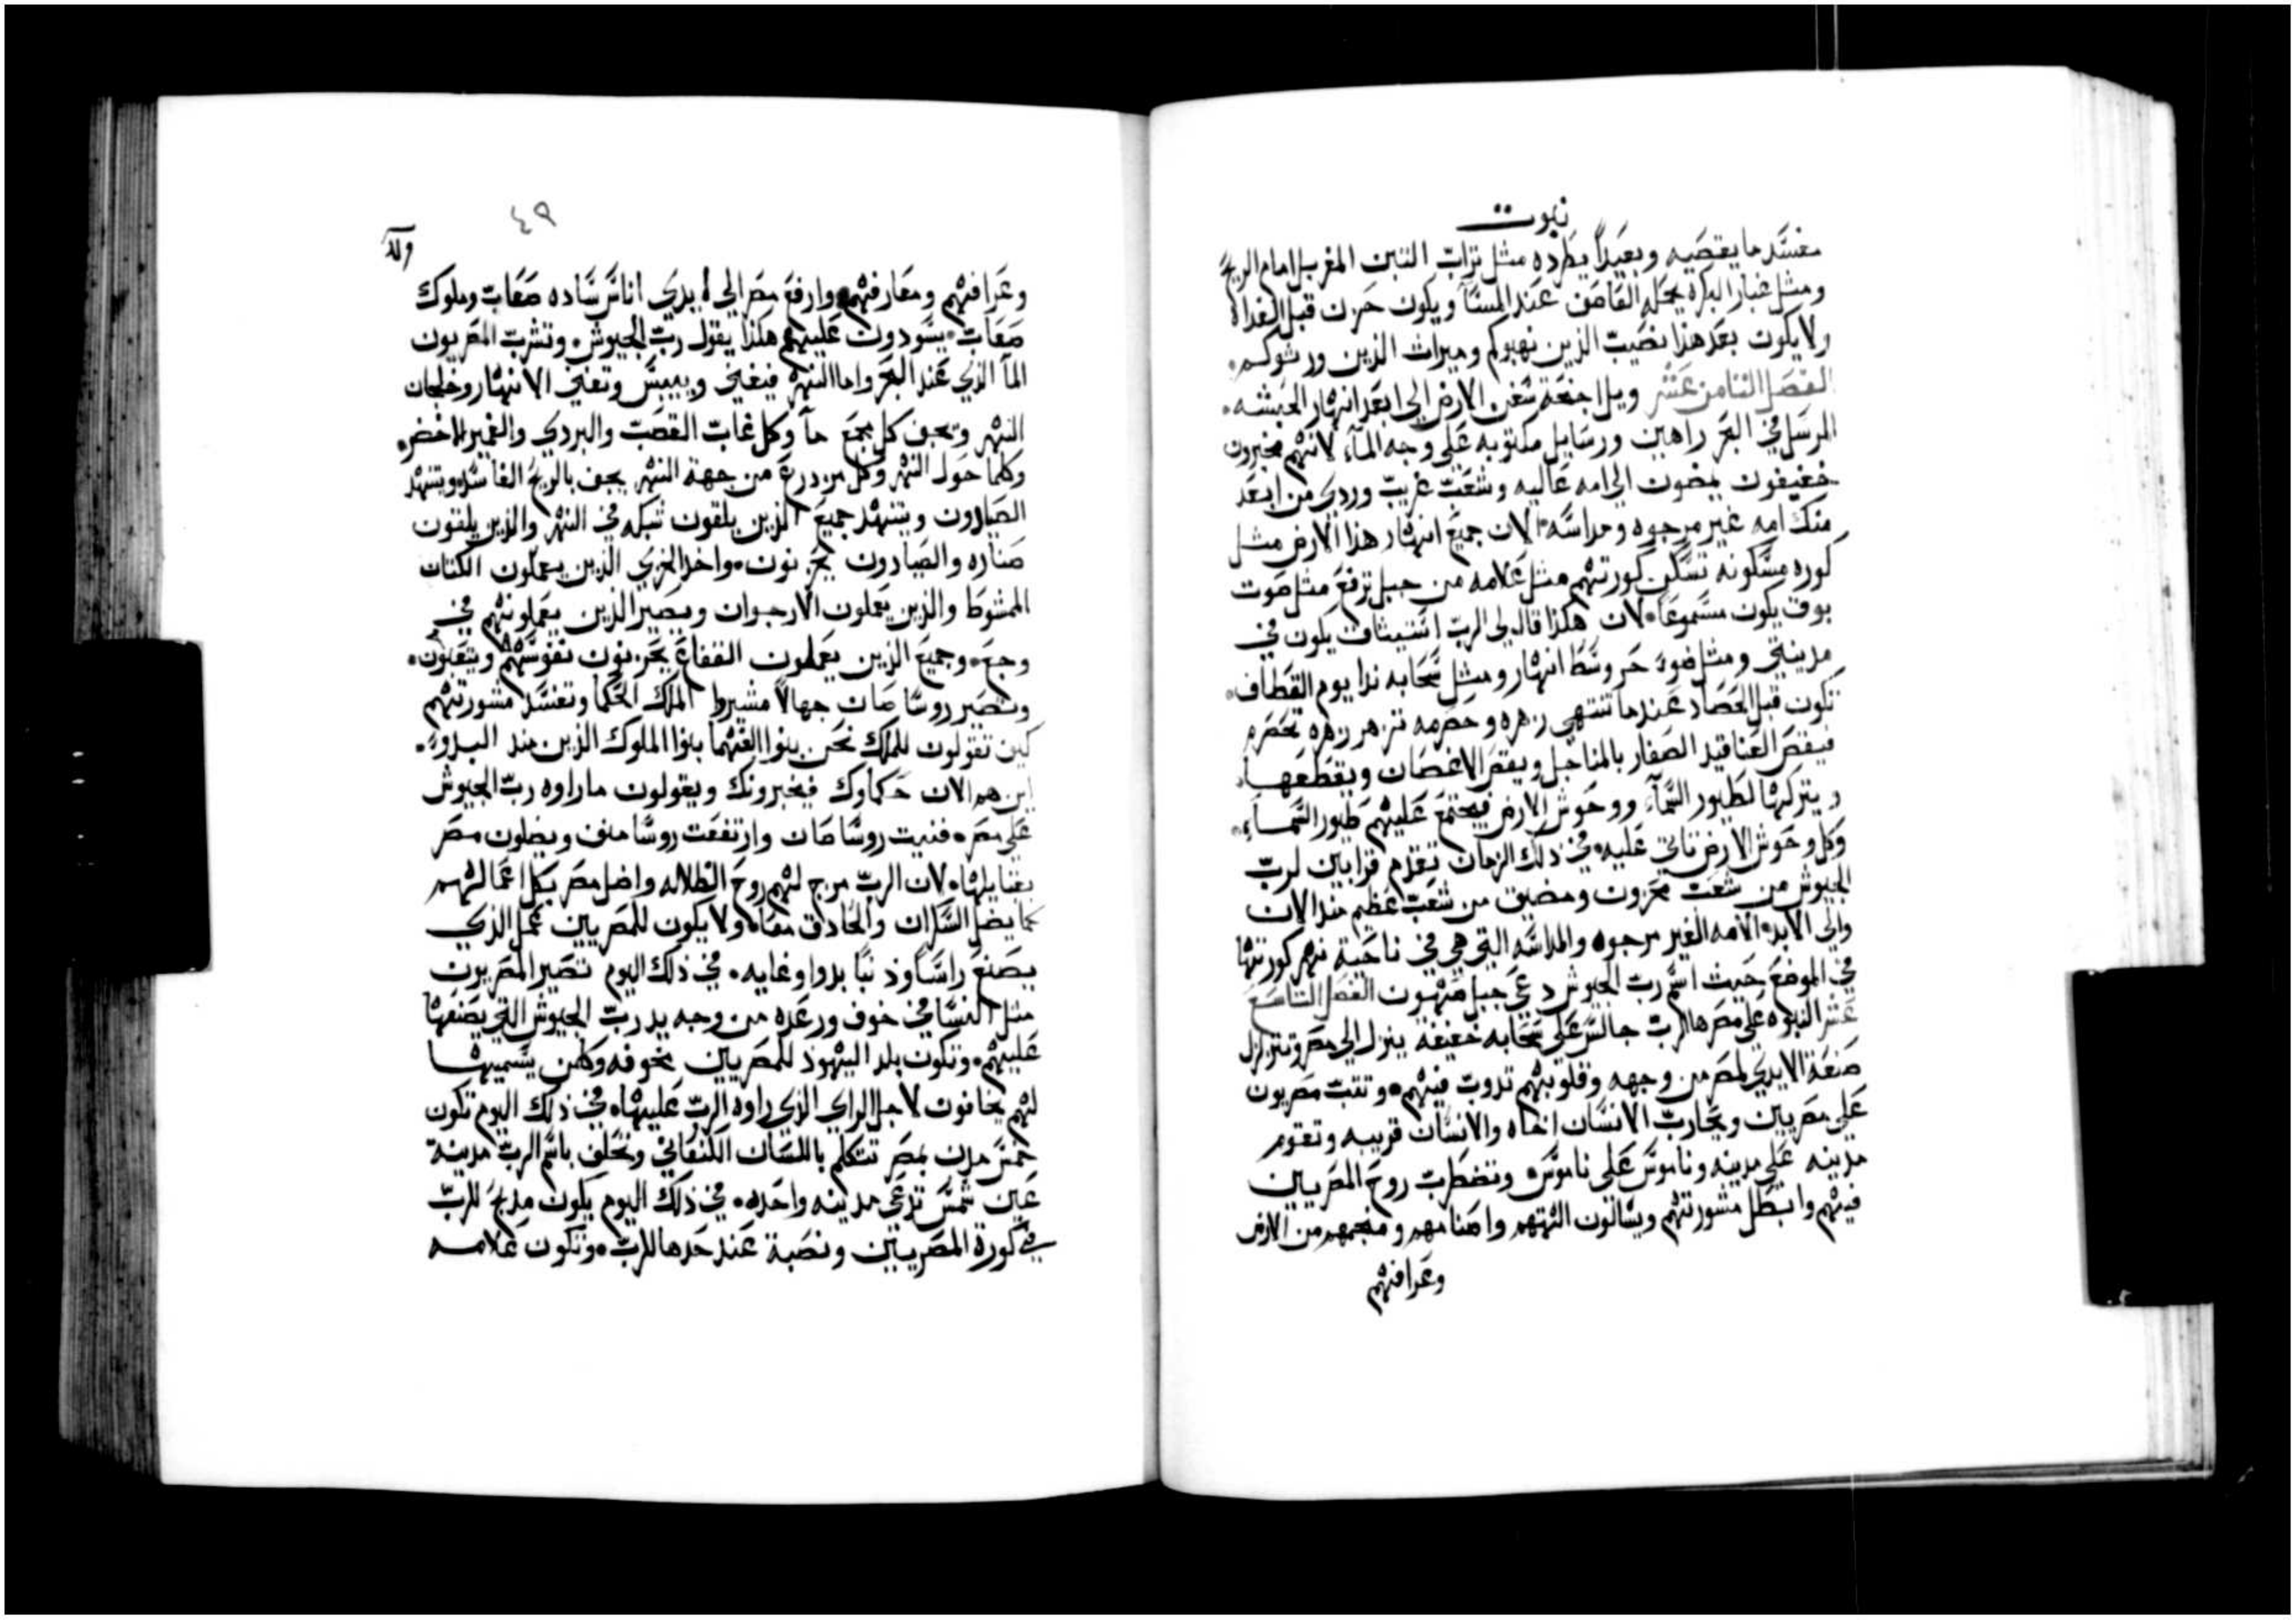 نبوت
مفسد ما يقصيه وبعيداً يطرده مثل تراب التبن المغربل امام الريح
ومثل غبار البكره يحمله القاصف عند المسآ ويكون حزن قبل الغداه
ولا يكون بعد هذا نصيب الذين نهبوكم وميراث الذين ورثوكم
الفصل الثامن عشر ويل اجنحة سفن الارض الى ابعد انهار الحبشه
المرسل في البحر راهين ورسايل مكتوبه على وجه المآء لانهم مخبرون
خفيفون يمضون الى امه عاليه وشعب غريب وردي من ابعد
منك امه غير مرجوه ومداسه الان جميع انهار هذا الارض مثل
كوره مسكونه تسكن كورتهم مثل علامه من جبل ترفع مثل صوت
بوق يكون مسموعاً لان هكذا قال لي الرب استيثاق يكون في
مدينتي ومثل ضوء حر وسط انهار ومثل سحابه ندا يوم القطاف
تكون قبل الحصاد عندما تنتهي زهره وحصرمه تزهر زهره بحصرم
فيقص العناقيد الصغار بالمناجل ويقص الاغصان ويقطعها
ويتركها لطيور السمآء ووحوش الارض فيجتمع عليهم طيور السمآء
وكل وحوش الارض تاتي عليه في ذلك الزمان تقدم قرابين لرب
الجيوش من شعب محزون ومضيق من شعب عظيم منذ الان
والى الابد الامه الغير مرجوه والمداسه التي هي في ناحية نهر كورتها
في الموضع حيث اسم رب الجيوش دعي جبل صهيون الفصل التاسع
عشر النبوه على مصر ها الرب جالس على سحابه خفيفه ينزل الى مصر وتتزلزل
صنعة الايدي لمصر من وجهه وقلوبهم تذوب فيهم وتثب مصريون
على مصريين ويحارب الانسان اخاه والانسان قريبه وتقوم
مدينه على مدينه وناموس على ناموس وتضطرب روح المصريين
فيهم وابتطل مشورتهم ويسالون الهتهم واصنامهم ومنجمهم من الارض
وعرافهم
٤٩
وعرافهم ومعارفهم وارفع مصر الى ايدي اناس ساده صعاب وملوك
صعاب يسودون عليهم هكذا يقول رب الجيوش وتشرب المصريون
المآ الذي عند البحر واما النهر فيفني وييبس وتفني الانهار وخلجان
النهر وتجف كل مجمع مآ وكل غاب القصب والبردي والغمير الاخضر
وكلما حول النهر وكل مزدرع من جهة النهر يجف بالريح الفاسد ويتنهد
الصيادون ويتنهد جميع الذين يلقون شبكه في النهر والذين يلقون
صناره والصيادون يحزنون واخذ الخزي الذين يعملون الكتان
الممشوط والذين يعملون الارجوان ويصير الذين يعملونهم في
وجع وجميع الذين يعملون الفقاع يحزنون نفوسهم ويتعبون
وتصير روسا صان جهالاً مشيروا الملك الحكما وتفسد مشورتهم
كيف تقولون للملك نحن بنوا الفهما بنوا الملوك الذين منذ البدو
اين هم الان حكماوك فيخبرونك ويقولون ماراوه رب الجيوش
على مصر فنيت روسا صان وارتفعت روسا منف ويضلون مصر
بقبايلها لان الرب مزج لهم روح الظلاله واضل مصر بكل اعمالهم
كما يضل السكران والحادق معاً ولا يكون للمصريين عمل الذي
يصنع راساً وذنباً بدوا وغايه في ذلك اليوم تصير المصريون
مثل النسا في خوف ورعده من وجه يد رب الجيوش التي يضعها
عليهم وتكون بلد اليهود للمصريين مخوفه وكلمن يسميها
لهم يخافون لاجل الراي الذي راوه الرب عليها في ذلك اليوم تكون
خمس مدن بمصر تتكلم باللسان الكنعاني وتحلف باسم الرب مدينة
عين شمس تدعى مدينه واحده في ذلك اليوم يكون مذبح للرب
في كورة المصريين ونصبة عند حدها للرب وتكون علامه